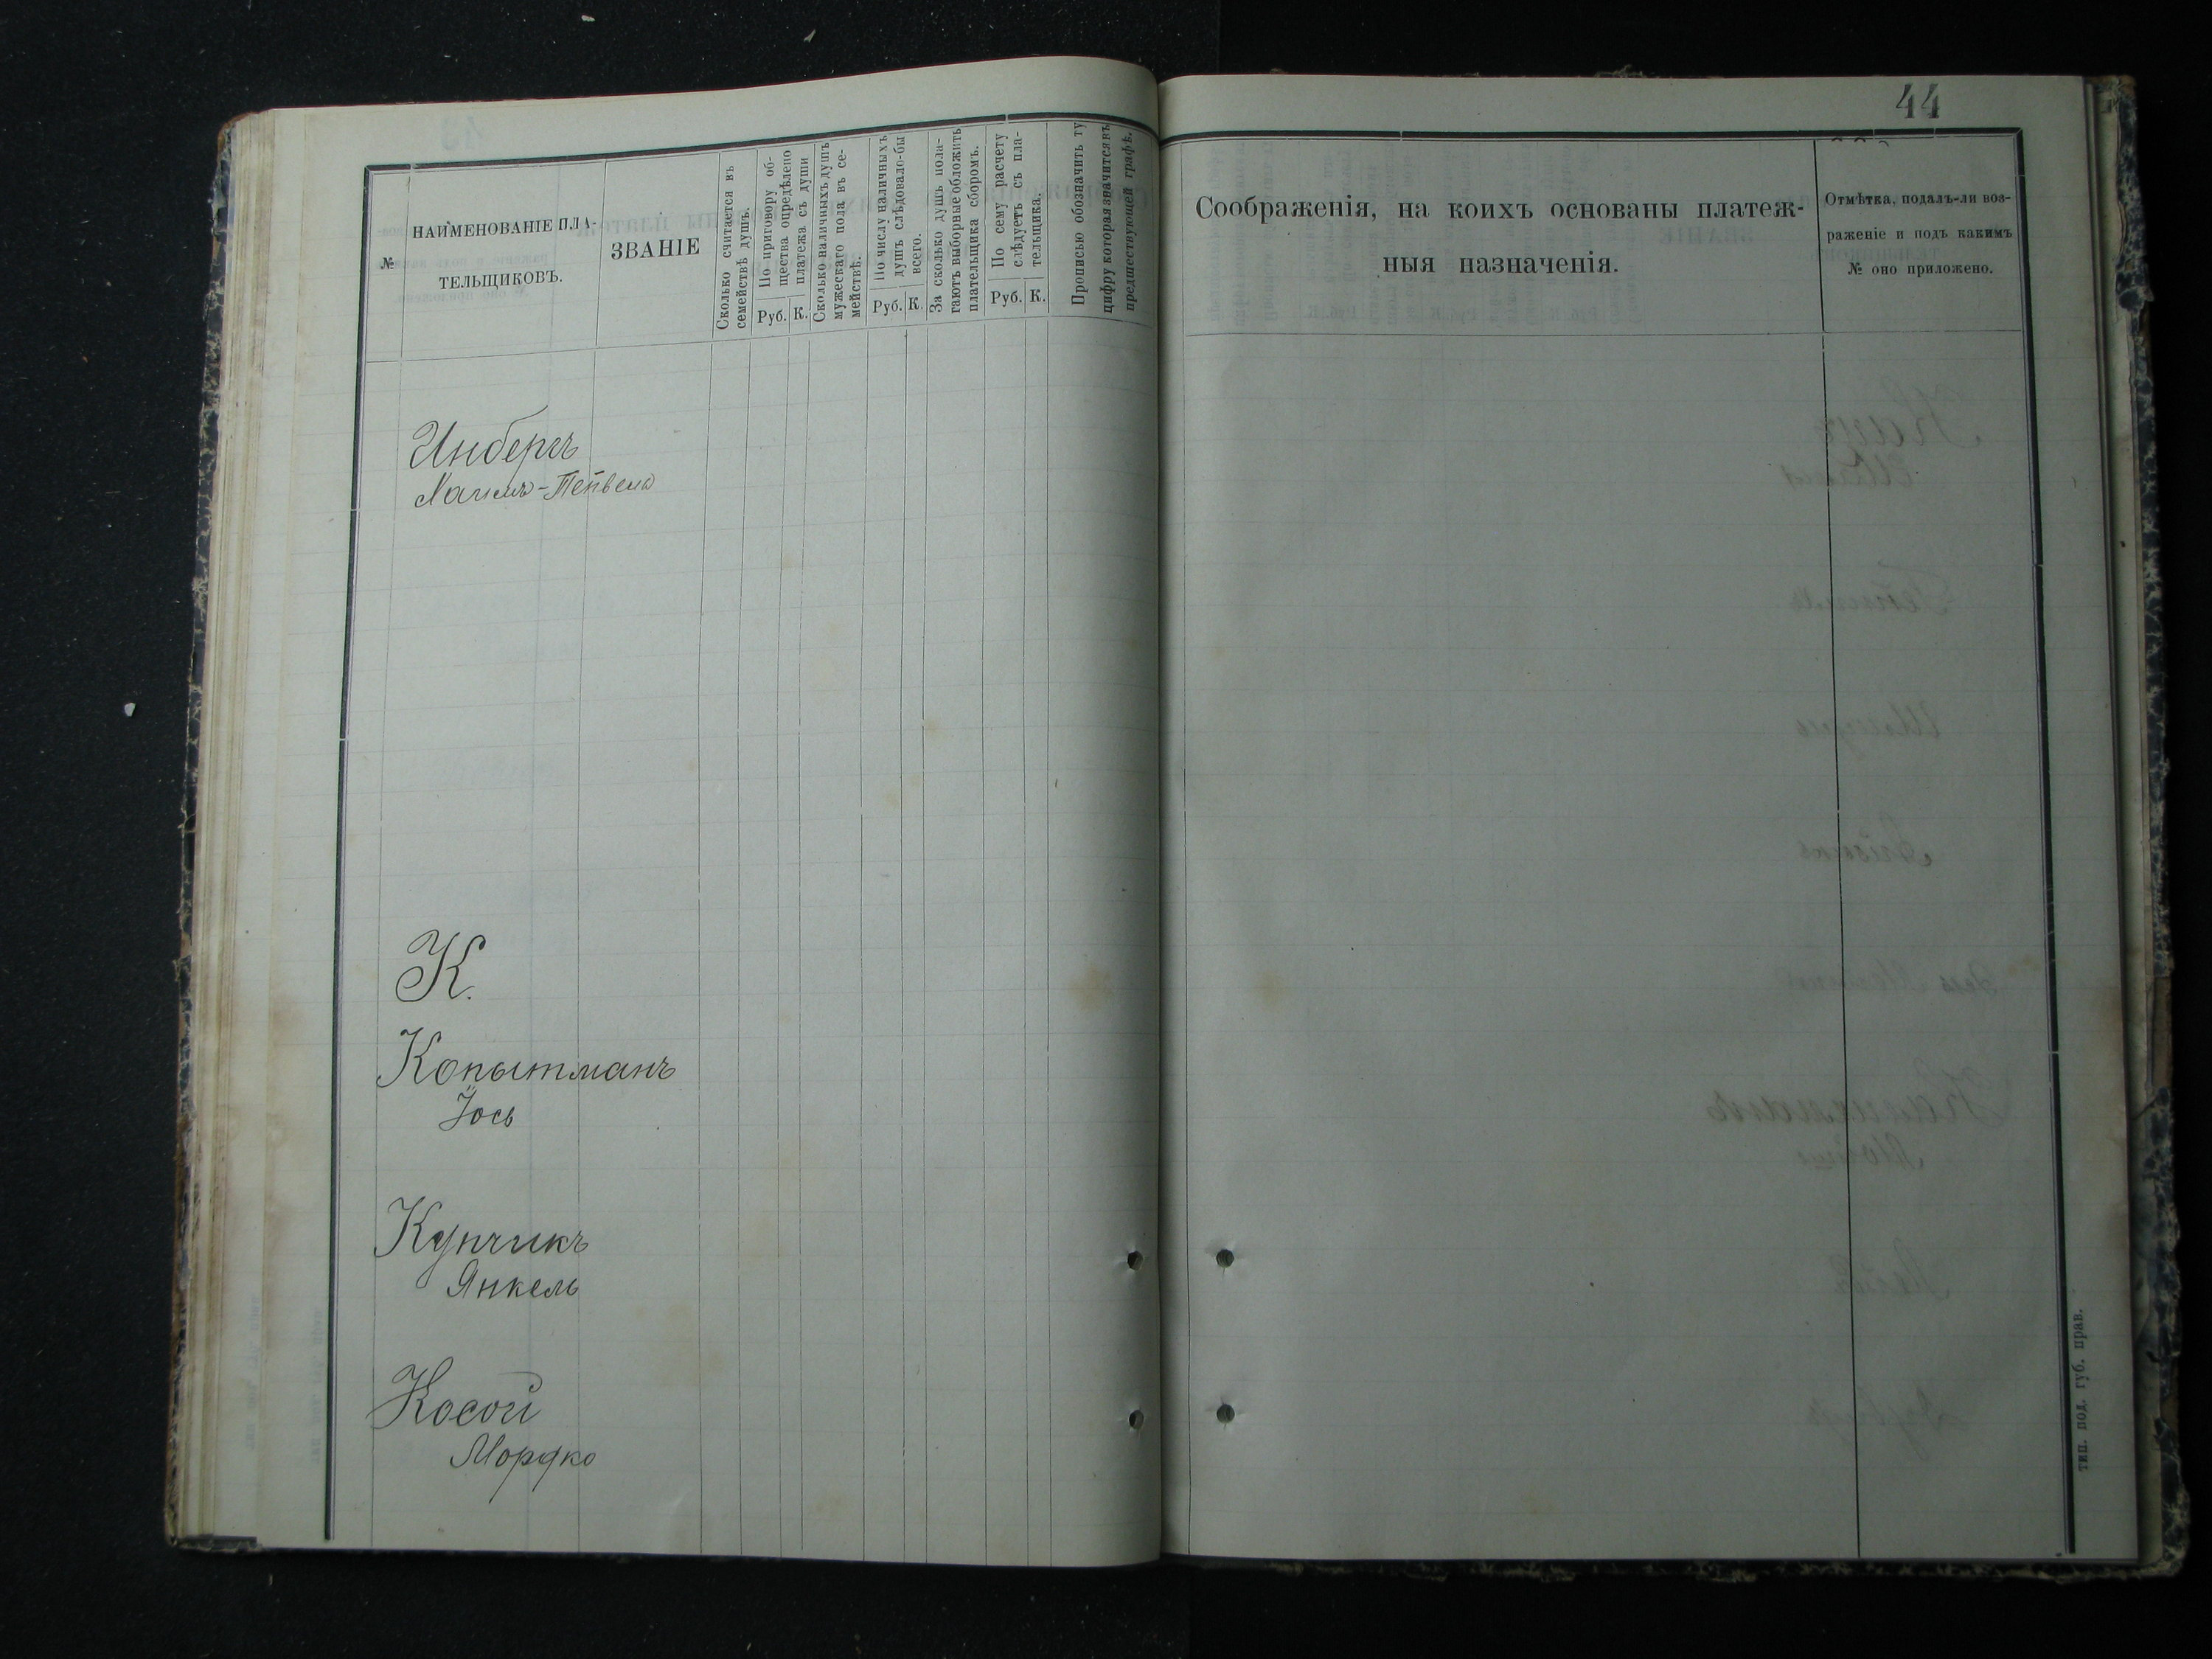 44
№
НАИМЕНОВАНІЕ ПЛА-
ТЕЛЬЩИКОВЪ.
ЗВАНІЕ
Сколько считается въ
семействѣ душъ.
По приговору об-
щества опредѣлено
платежа съ души
Руб. К.
Сколько наличныхъ душъ
мужескаго пола въ се-
мействѣ.
По числу наличныхъ
душъ слѣдовало-бы
всего.
Руб. К.
За сколько душъ пола-
гаютъ выборные обложить
плательщика сборомъ.
По сему расчету
слѣдуетъ съ пла-
тельщика.
Руб. К.
Прописью обозначить ту
цифру которая значится въ
предшествующей графѣ.
Соображенія, на коихъ основаны платеж-
ныя назначенія.
Отмѣтка, подалъ-ли воз-
раженіе и подъ какимъ
№ оно приложено.
Инберъ
К.
Копытманъ
Іось
Купчикъ
Янкель
Косой
Мордко
тип. под. губ. прав.